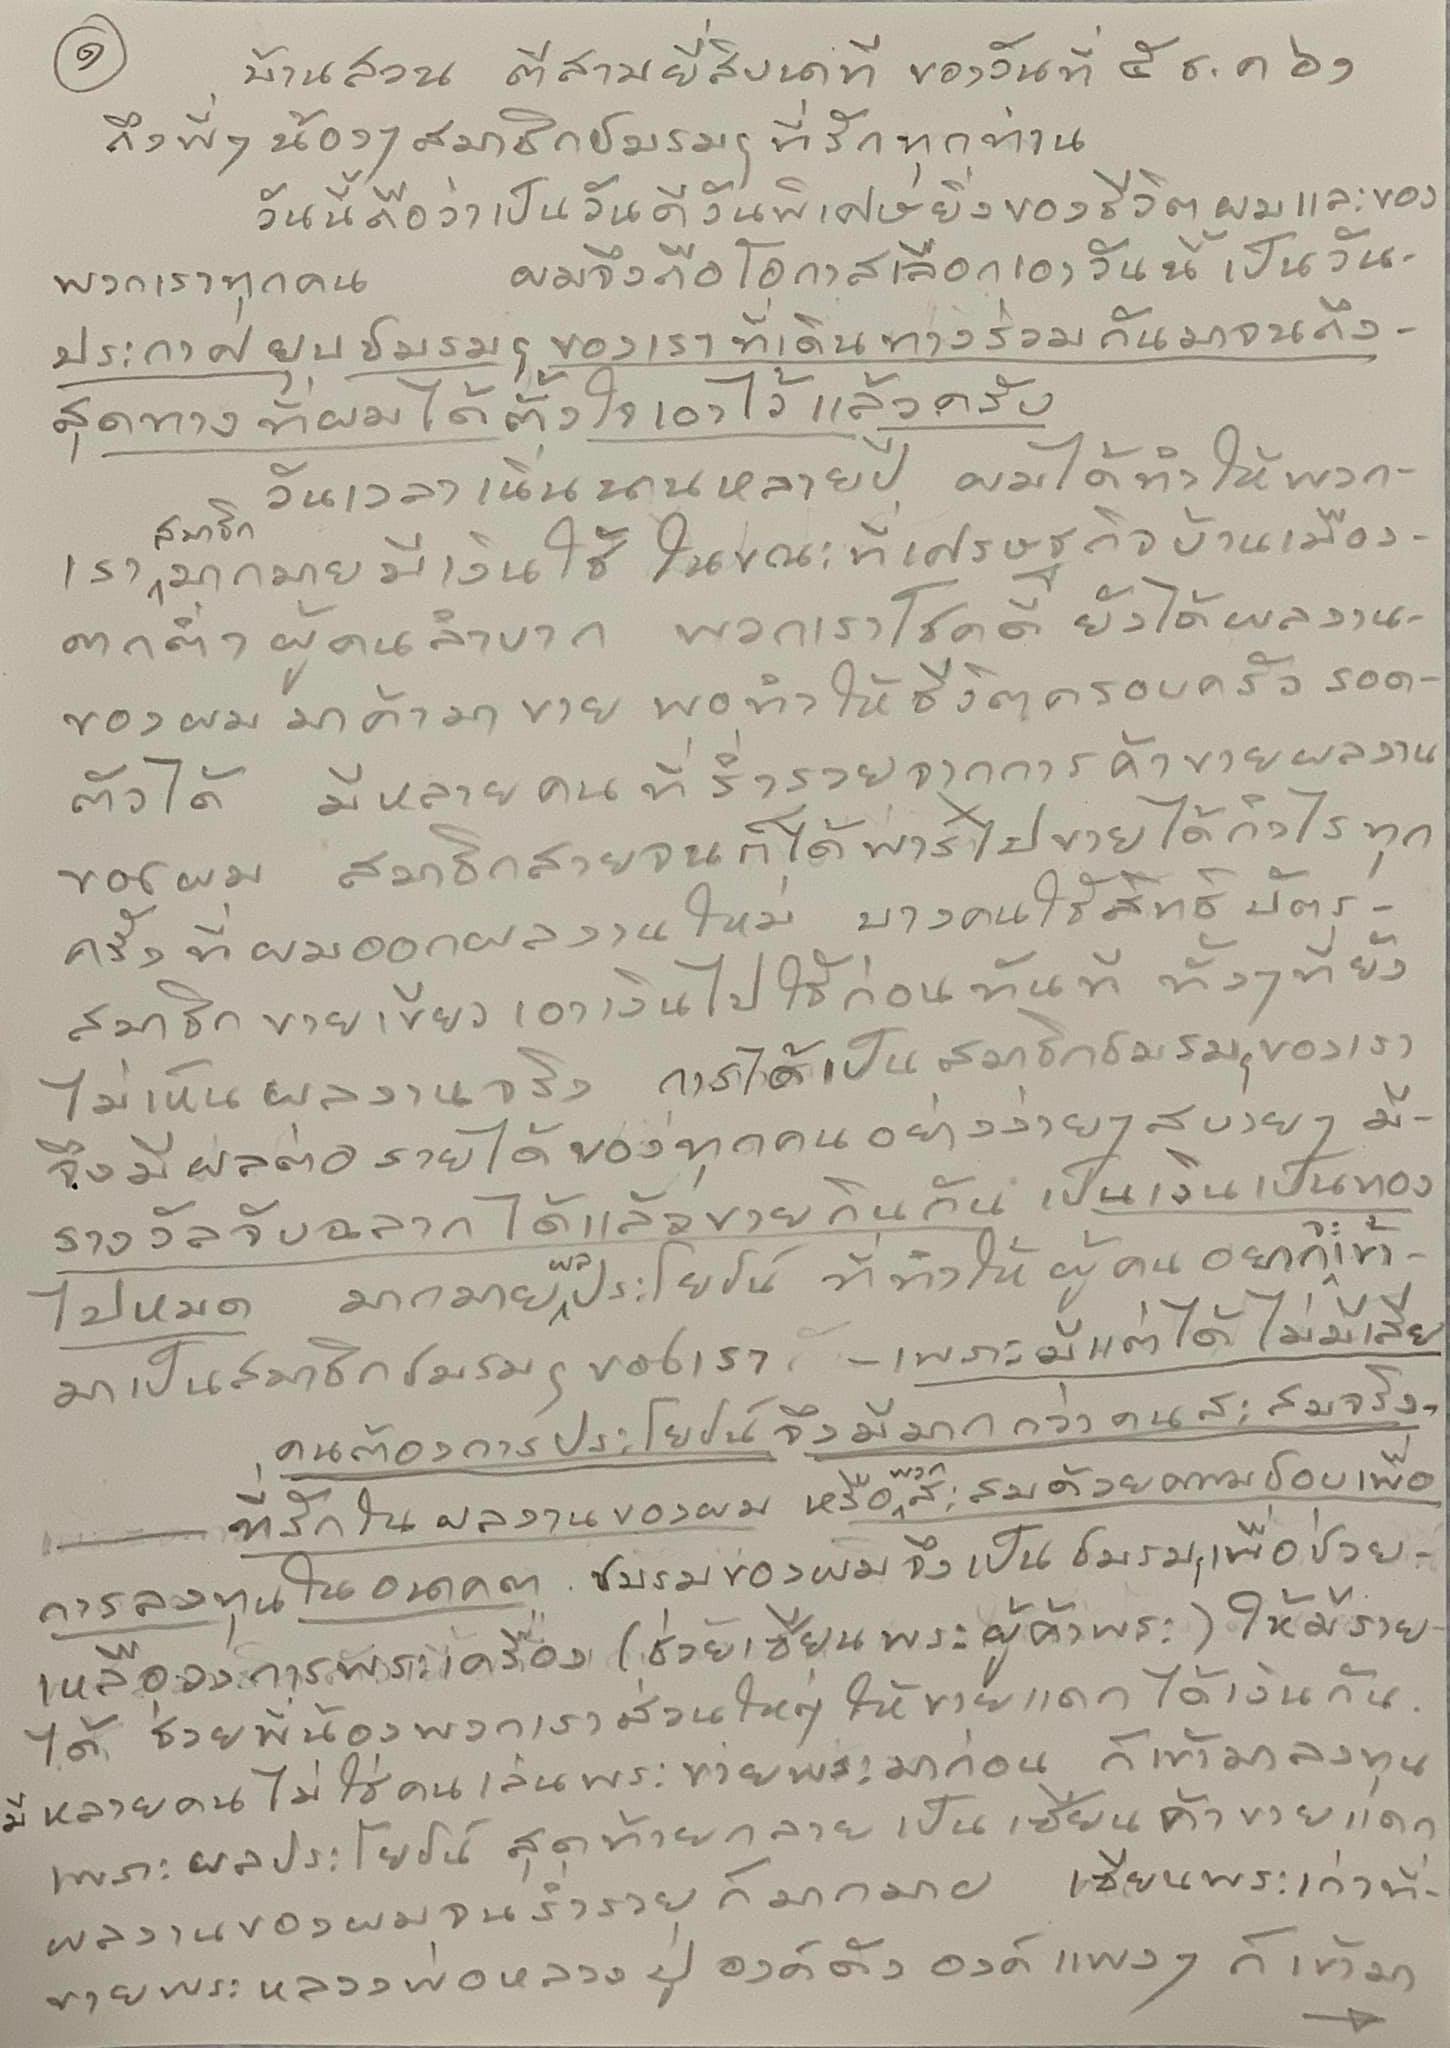 ๑
บ้านสวน ตีสามยี่สิบนาที ของวันที่ ๕ ธ.ค ๖๑
ถึงพี่ๆ น้องๆ สมาชิกชมรมฯ ที่รักทุกท่าน
วันนี้ถือว่าเป็นวันดีวันพิเศษยิ่งของชีวิตผมและของ
พวกเราทุกคน ผมจึงถือโอกาสเลือกเอาวันนี้ เป็นวัน-
ประกาศยุบชมรมฯ ของเราที่เดินทางร่วมกันมาจนถึง-
สุดทางที่ผมได้ตั้งใจเอาไว้แล้วครับ
วันเวลาเนิ่นนานหลายปี ผมได้ทำให้พวก-
เราสมาชิกมากมายมีเงินใช้ ในขณะที่เศรษฐกิจบ้านเมือง-
ตกต่ำ ผู้คนลำบาก พวกเราโชคดี ยังได้ผลงาน-
ของผม มาค้ามาขาย พอทำให้ชีวิตครอบครัว รอด-
ตัวได้ มีหลายคนที่ร่ำรวยจากการค้าขายผลงาน
ของผม สมาชิกสายจนก็ได้พาร์ไปขายได้กำไรทุก
ครั้งที่ผมออกผลงานใหม่ บางคนใช้สิทธิ์บัตร-
สมาชิก ขายเขียว เอาเงินไปใช้ก่อนทันที ทั้งๆที่ยัง
ไม่เห็นผลงานจริง การได้เป็นสมาชิกชมรมฯของเรา
จึงมีผลต่อรายได้ของทุกคนอย่างง่ายๆสบายๆ มี-
รางวัลจับฉลากได้แล้วขายกินกัน เป็นเงินเป็นทอง
ไปหมด มากมายผลประโยชน์ ที่ทำให้ผู้คนอยากจะเข้า-
มาเป็นสมาชิกชมรมฯ ของเรา - เพราะมีแต่ได้ ไม่มีเสีย
คนต้องการประโยชน์จึงมีมากกว่าคนสะสมจริง-
ที่รักในผลงานของผม หรือพวกสะสมด้วยความชอบเพื่อ
การลงทุนในอนาคต. ชมรมของผมจึงเป็นชมรมฯเพื่อช่วย-
เหลือวงการพระเครื่อง (ช่วยเซียนพระผู้ค้าพระ) ให้มีราย-
ได้ ช่วยพี่น้องพวกเราส่วนใหญ่ ให้ขายแดกได้เงินกัน.
มีหลายคนไม่ใช่คนเล่นพระขายพระมาก่อน ก็เข้ามาลงทุน
เพราะผลประโยชน์ สุดท้ายกลายเป็นเซียนค้าขายแดก
ผลงานของผมจนร่ำรวยก็มากมาย เซียนพระเก่าที่-
ขายพระหลวงพ่อหลวงปู่ องค์ดัง องค์แพงๆ ก็เข้ามา